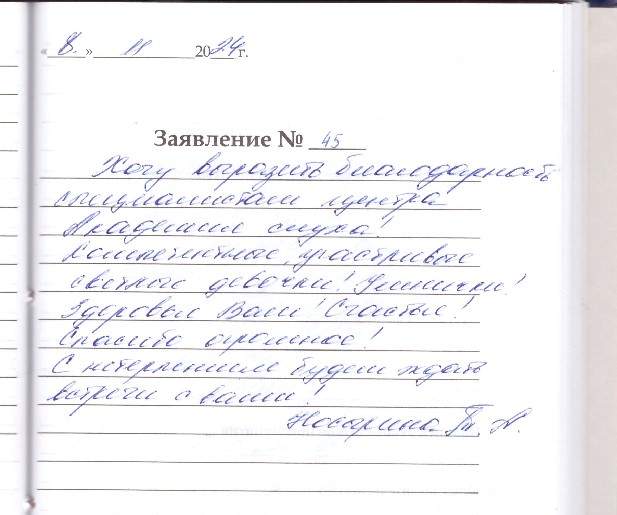 «8.» 11 2024 г.
Заявление № 45
Хочу выразить благодарность
специалистам центра
Академии слуха!
Компетентные, участливые
светлые девочки! Умнички!
Здоровья Вам! Счастья!
Спасибо огромное!
С нетерпением будем ждать
встречи с вами!
Носарина Т. А.